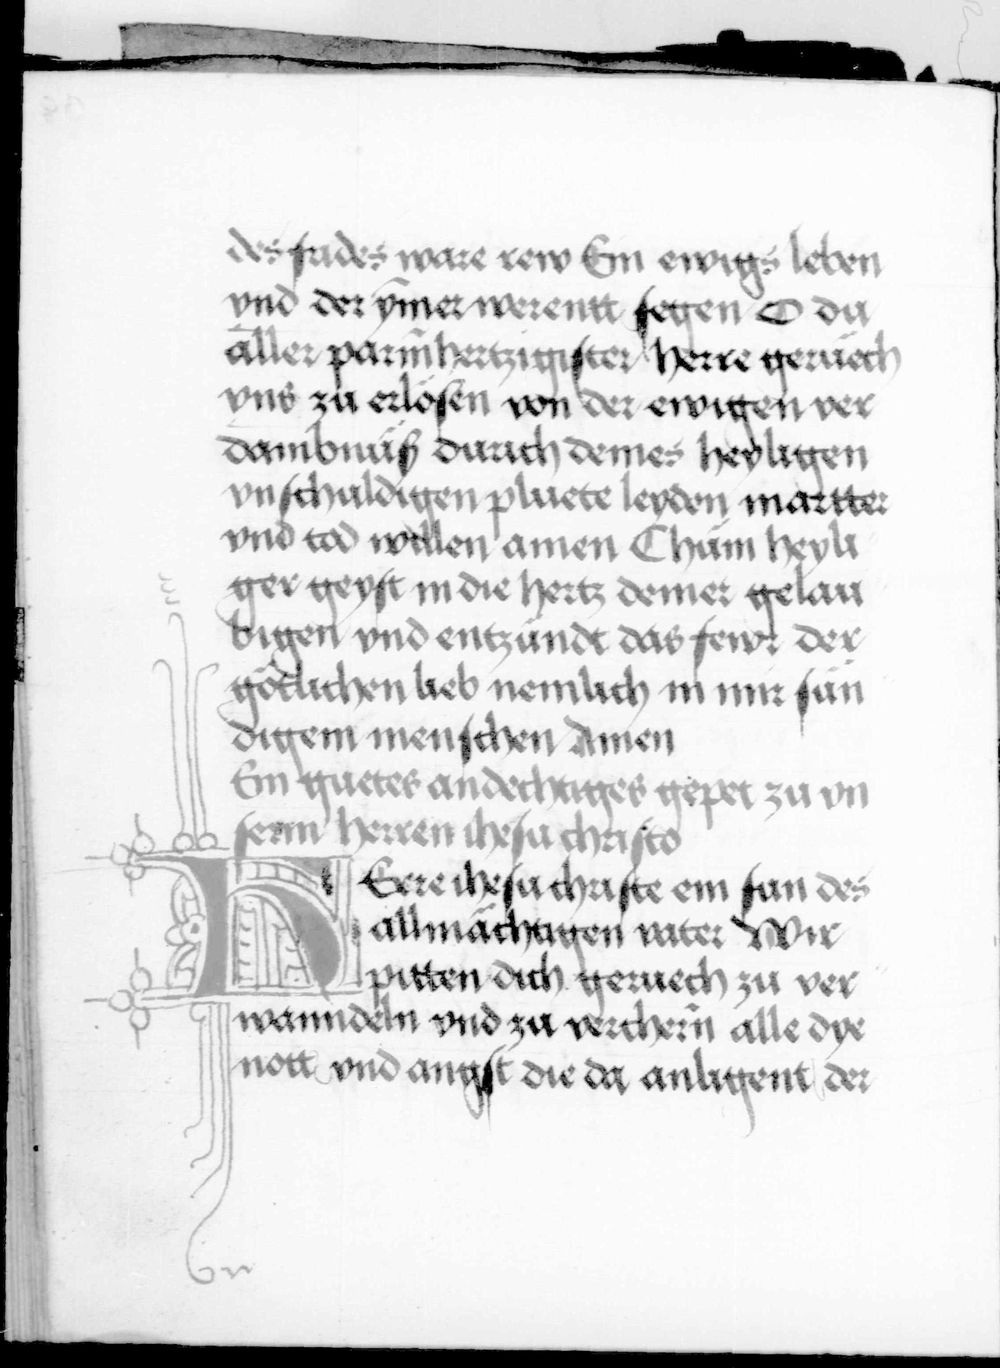 des frides ware rew Ein ewigs leben
vnd der ymer werentt segen O du
aller parmhertzigister herre geruech
vns zu erlösen von der ewigen ver
dambnüsß durich deines heyligen
vnschuldigen pluete leyden martter
vnd tod willen amen Chüm heyli
ger geyst in die hertz deiner gelau
bigen vnd entzündt das fewr der
götlichen lieb nemlich in mir sün
digem menschen Amen
Ein guetes andechtiges gepet zu vn
serm herren ihesu christo
HErre ihesu christe ein sun des
allmächtigen vater Wir
pitten dich geruech zu ver
wanndeln vnd zu verchern alle dye
nott vnd angst die da anligent der